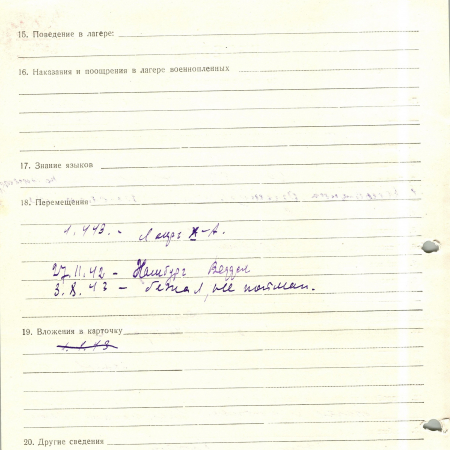 15. Поведение в лагере:
16. Наказания и поощрения в лагере военнопленных
17. Знание языков
18. Перемещения
1.4.43. - Лагерь X-A.
27.11.42 -
3.8.43 - бежал, не пойман.
19. Вложения в карточку
20. Другие сведения